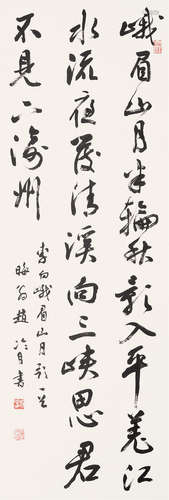 峨眉山月半輪秋影入平羌江
水流夜發清溪向三峽思君
不見下渝州
李白峨眉山月歌一首
晦翁趙冷月書